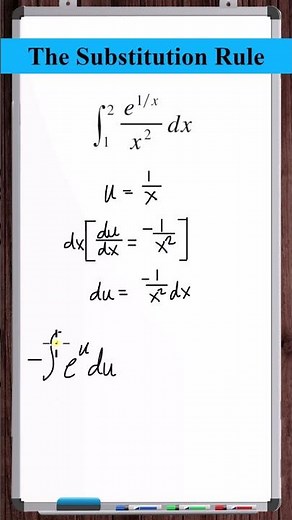 The Substitution Rule
∫₁² e^{1/x}/x² dx
u = 1/x
dx[du/dx = -1/x²]
du = -1/x² dx
-∫ e^u du